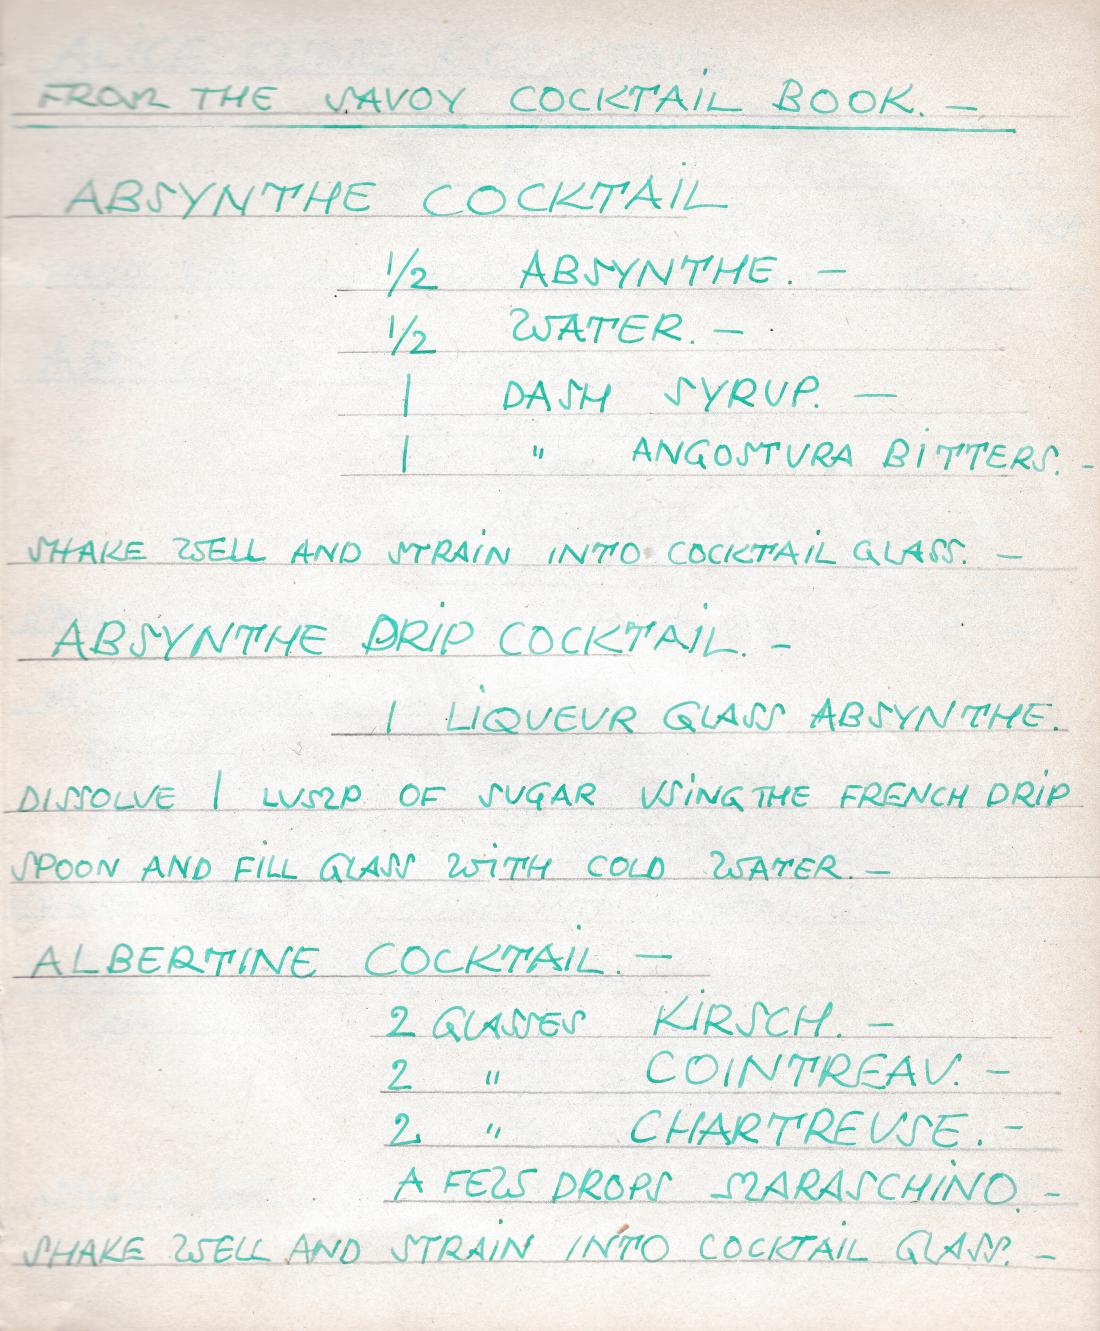 FROM THE SAVOY COCKTAIL BOOK. —
ABSYNTHE COCKTAIL
1/2 ABSYNTHE. —
1/2 WATER. —
1 DASH SYRUP. —
1 " ANGOSTURA BITTERS. -
SHAKE WELL AND STRAIN INTO COCKTAIL GLASS. —
ABSYNTHE DRIP COCKTAIL. —
1 LIQUEUR GLASS ABSYNTHE.
DISSOLVE 1 LUMP OF SUGAR USING THE FRENCH DRIP
SPOON AND FILL GLASS WITH COLD WATER. —
ALBERTINE COCKTAIL. —
2 GLASSES KIRSCH. —
2 " COINTREAU. —
2 " CHARTREUSE. —
A FEW DROPS MARASCHINO. —
SHAKE WELL AND STRAIN INTO COCKTAIL GLASS. —